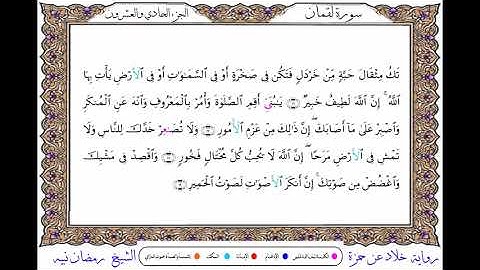 الجزء الحادي والعشرون
سورة لقمان
تَكُ مِثْقَالَ حَبَّةٍ مِّنْ خَرْدَلٍ فَتَكُن فِى صَخْرَةٍ أَوْ فِى ٱلسَّمَـٰوَٰتِ أَوْ فِى ٱلْأَرْضِ يَأْتِ بِهَا
ٱللَّهُ ۚ إِنَّ ٱللَّهَ لَطِيفٌ خَبِيرٌ ۝ يَـٰبُنَىِّ أَقِمِ ٱلصَّلَوٰةَ وَأْمُرْ بِٱلْمَعْرُوفِ وَٱنْهَ عَنِ ٱلْمُنكَرِ
وَٱصْبِرْ عَلَىٰ مَآ أَصَابَكَ ۖ إِنَّ ذَٰلِكَ مِنْ عَزْمِ ٱلْأُمُورِ ۝ وَلَا تُصَـٰعِرْ خَدَّكَ لِلنَّاسِ وَلَا
تَمْشِ فِى ٱلْأَرْضِ مَرَحًا ۖ إِنَّ ٱللَّهَ لَا يُحِبُّ كُلَّ مُخْتَالٍ فَخُورٍ ۝ وَٱقْصِدْ فِى مَشْيِكَ
وَٱغْضُضْ مِن صَوْتِكَ ۚ إِنَّ أَنكَرَ ٱلْأَصْوَٰتِ لَصَوْتُ ٱلْحَمِيرِ ۝
رواية خلاد عن حمزة
الشيخ رمضان نبيه